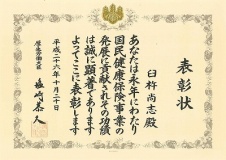 表彰状
臼杵尚志殿
あなたは永年にわたり
国民健康保険事業の
発展に貢献されその功績
は誠に顕著であります
よってここに表彰します
平成二十六年十月二十日
厚生労働大臣
塩崎恭久